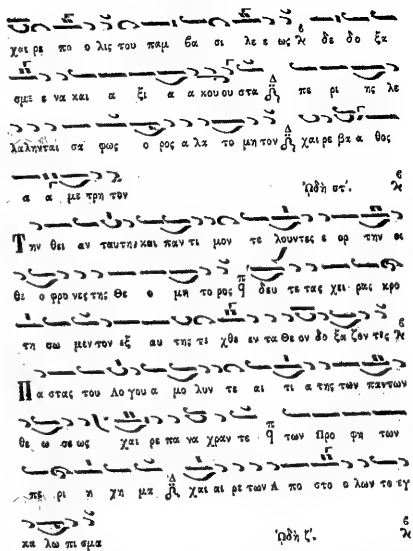 χαι ρε πο ο λις του παμ βα σι λε ε ως δε δο ξα
σμε ε να και α ξι α α κου ου στα πε ρι ης λε
λαληνται σα φως ο ρος α λα το μη τον χαι ρε βα α θος
α α με τρη τον Ὠδὴ στ´.
Την θει αν ταυτην και παν τι μον τε λουντες ε ορ την οι
θε ο φρο νες της Θε ο μη το ρος δευ τε τας χει ρας κρο
τη σω μεν τον εξ αυ της τε χθε εν τα Θε ον δο ξα ζον τες
Πα στας του Λο γου α μο λυν τε αι τι α της των παντων
θε ω σε ως χαι ρε πα να χραν τε των Προ φη των
πε ρι η χη μα χαι αι ρε των Α πο στο ο λων το εγ
κα λω πι σμα Ὠδὴ ζ´.